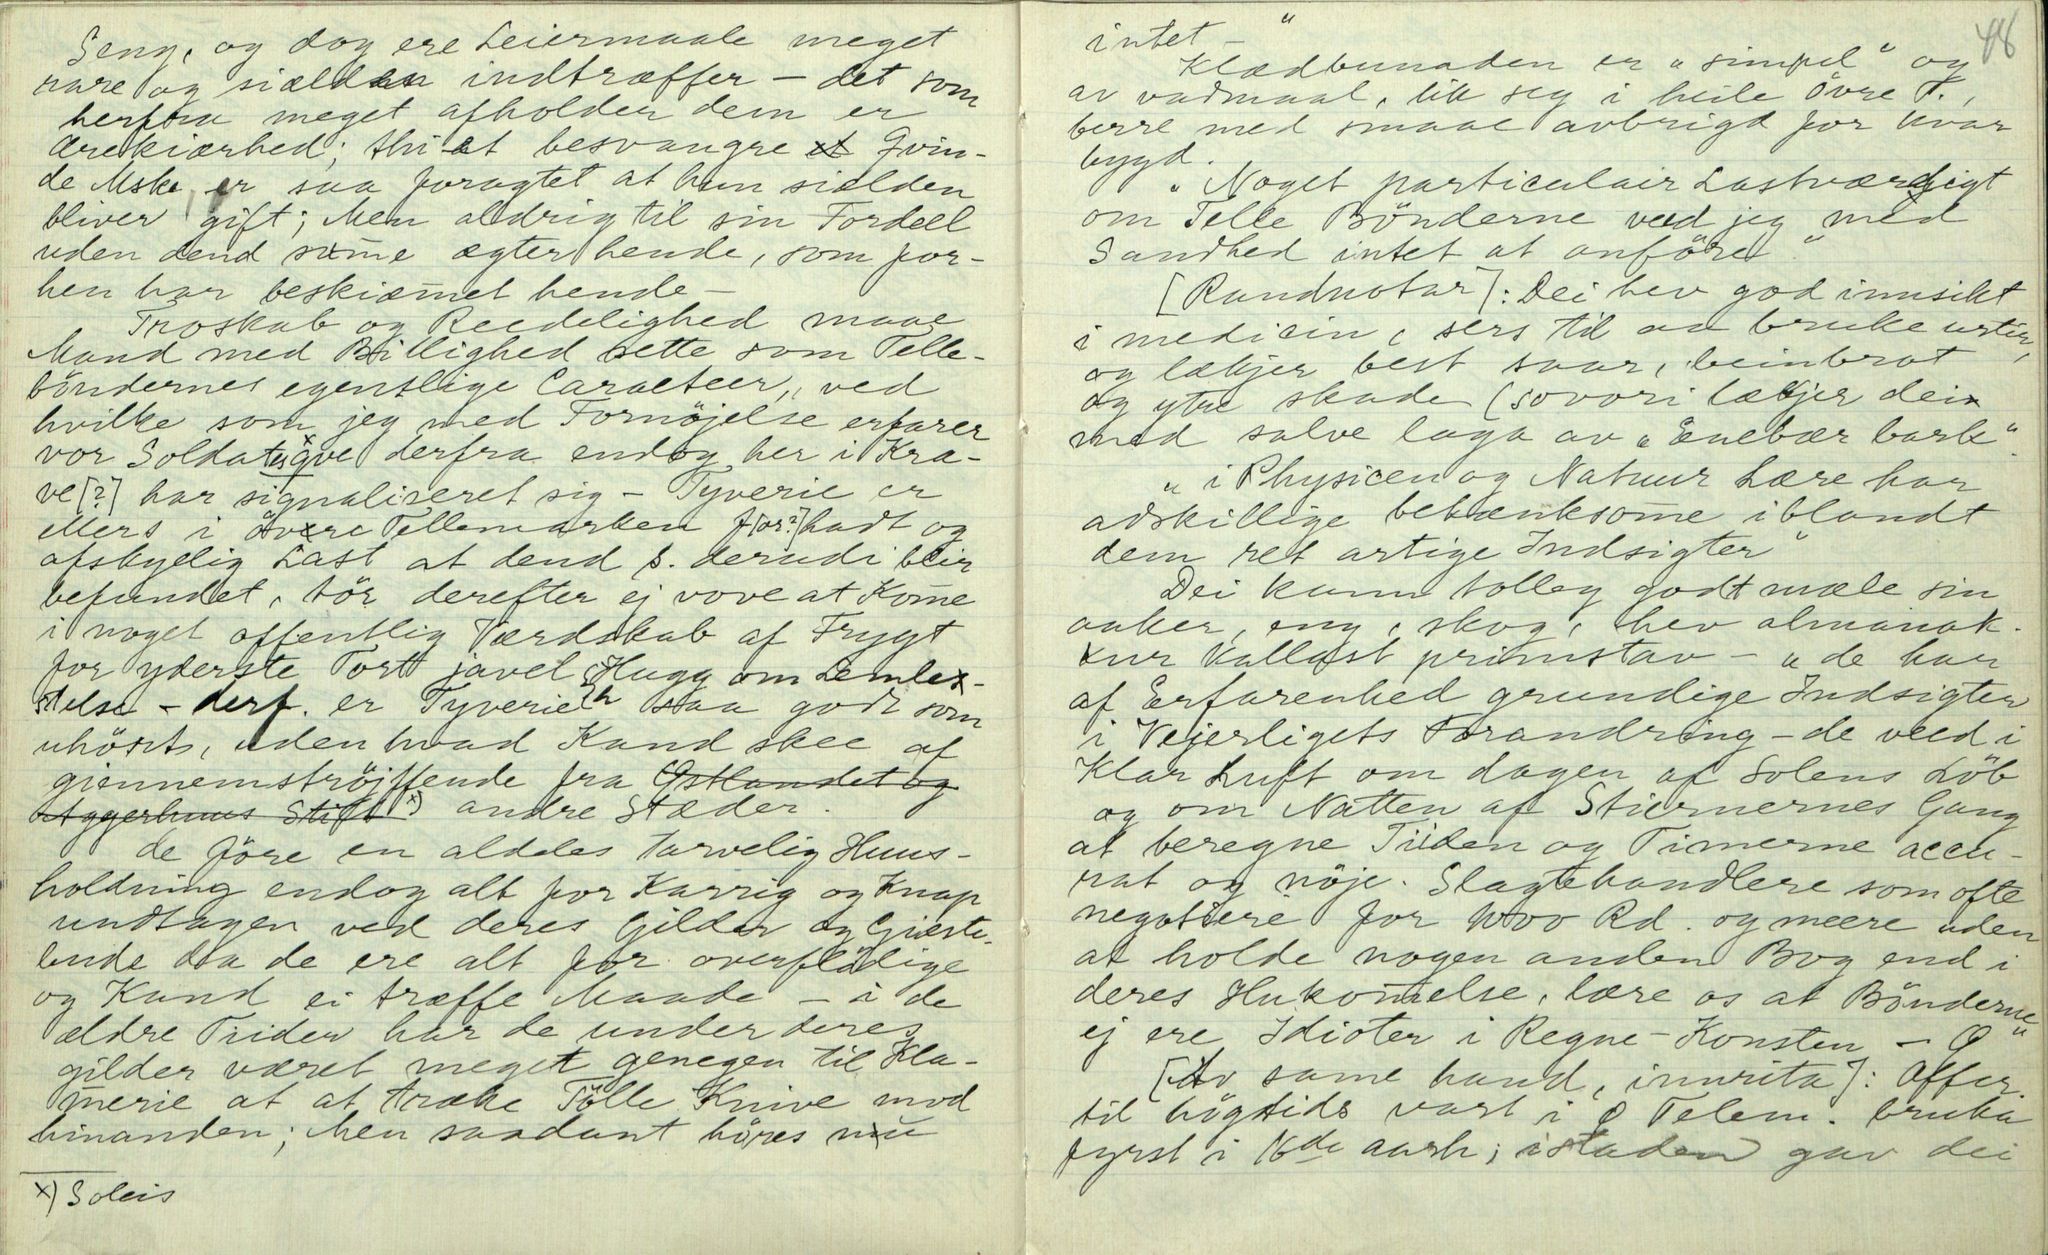 Seng, og dog ere Leiermaale meget
rare og siælden indtræffer – det som
herfra meget afholder dem er
Ærekiærhed; thi et besvangre Qvin-
de Mske er saa foragtet at hun sielden
bliver gift; Men aldrig til sin Fordeel
uden dend same ægter hende, som for-
hen har beskiæmet hende –
Troskab og Reedelighed maae
Mand med Billighed sette som Telle-
böndernes egentlige Caracteer, ved
hvilke som jeg med Fornöjelse erfarer
vor Soldatesqve x derfra endog her i Kra-
ve [?] har signaliseret sig – Tyverie er
ellers i övre Tellemarken f[or?]hadt og
afskyelig Last at dend s. derudi bleir
befundet, tör derefter ej vove at Kome
i noget offentlig Værdskab af Frygt
for yderste Tort javel Hugg om Lemle-
stelse – derf. er Tyverie h saa godt som
uhört, uden hvad Kand skee af
giennemströjffende fra Östlandet og
Aggerhuus Stift x) andre Stæder.
de före en aldeles tarvelig Huus-
holdning endog alt for Karrig og Knap
undtagen ved deres Gilder og Gieste-
bude da de ere alt for overflödige
og Kand ei træffe Maade – i de
ældre Tiider har de under deres
gilder været meget genegen til Kla-
merie at at træke Tölle Knive mod
hinanden; Men saadant höres nu
x) Soleis
48
intet – "
Klædbunaden er „simpel" og
av vadmaal, lik seg i heile övre T.,
berre med smaae avbrigd for kvar
bygd.
„Noget particulair Lastværdigt
om Telle Bönderne veed jeg med
Sandhed intet at anföre"
[Randnotar]: Dei hev god innsikt
i medicin, sers til aa bruke urtir,
og lækjer best saar, beinbrot
og ytre skade (sovori lækjer dei
med salve laga av „Enebær bark"
„i Physicen og Natuur Lære har
adskillige betænksome iblandt
dem ret artige Indsigter"
Dei kunn tolleg godt mæle sin
aaker, eng, skog, hev almanak-
kur kallast primstav – „de har
af Erfarenhed grundige Indsigter
i Vejerligets Forandring – de veed i
Klar Luft om dagen af Solens Löb
og om Natten af Stiernernes Gang
at beregne Tiiden og Timerne accu-
rat og nöje. Slagtehandlere som ofte
negotiere for 1000 Rd. og meere uden
at holde nogen anden Bog end i
deres Hukomelse, lære os at Bönderne
ej ere Idioter i Regne-Konsten – "
[Av same hand, innrita]: Offer
til högtids vart i Ö Telem. bruka
fyrst i 18de aarh; istaden gav dei